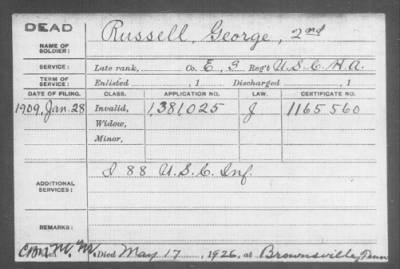 DEAD
NAME OF SOLDIER: Russell, George, 2nd
SERVICE: Late rank, Co. E, 3 Reg't U.S.C.H.A.
TERM OF SERVICE: Enlisted , 1 Discharged , 1
DATE OF FILING. CLASS. APPLICATION NO. LAW. CERTIFICATE NO.
1909, Jan. 28 Invalid, 1,381025 J 1165560
Widow,
Minor,
ADDITIONAL SERVICES: I 88 U.S.C. Inf.
REMARKS:
Died May 17, 1926, at Brownsville, Tenn